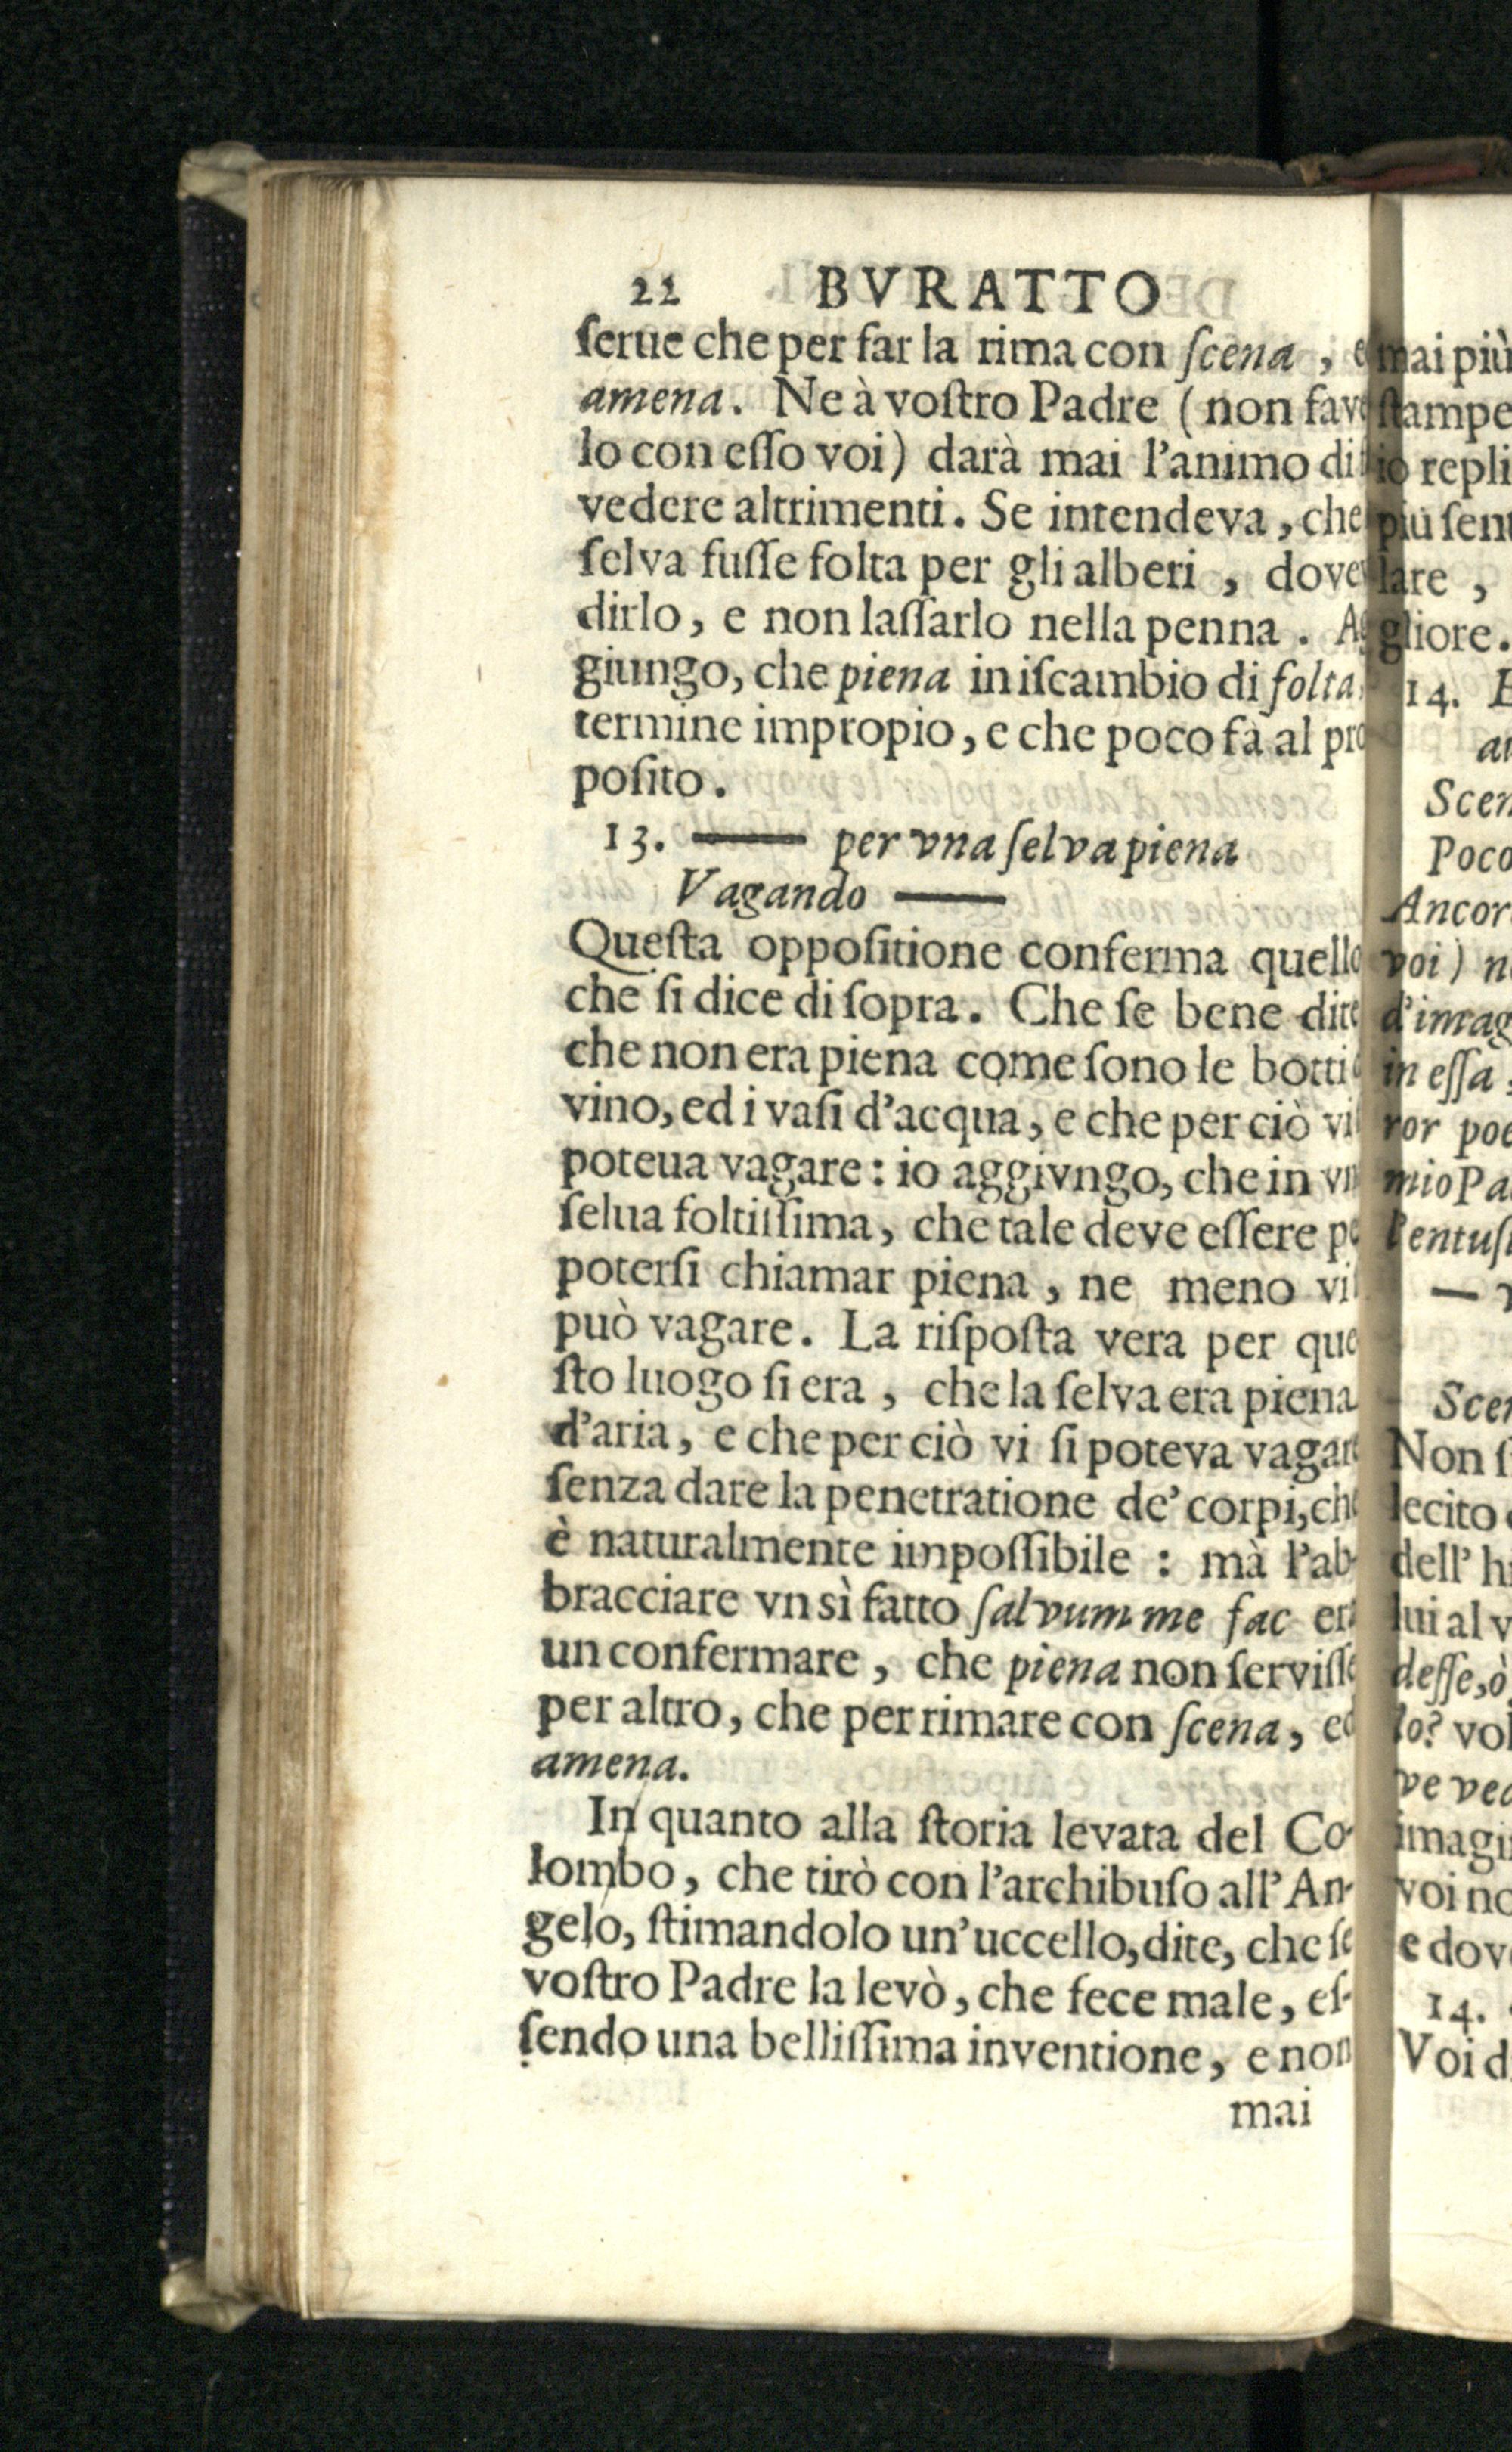 22 BVRATTO
ſerue che per far la rima con ſcena, e
amena. Ne à voſtro Padre (non favo
lo con eſſo voi) darà mai l'animo di
vedere altrimenti. Se intendeva, che
ſelva fuſſe folta per gli alberi, dove
dirlo, e non laſſarlo nella penna. Ag
giungo, che piena in iſcambio di folta
termine impropio, e che poco fà al pro
poſito.
13. —— per vna ſelva piena
Vagando ——
Queſta oppoſitione conferma quello
che ſi dice di ſopra. Che ſe bene dite
che non era piena come ſono le botti
vino, ed i vaſi d'acqua, e che per ciò vi
poteua vagare: io aggivngo, che in vn
ſelua foltiſſima, che tale deve eſſere pe
poterſi chiamar piena, ne meno vi
può vagare. La riſpoſta vera per que
ſto luogo ſi era, che la ſelva era piena
d'aria, e che per ciò vi ſi poteva vagare
ſenza dare la penetratione de' corpi, che
è naturalmente impoſſibile: mà l'ab-
bracciare vn sì fatto ſalvum me fac er
un confermare, che piena non ſerviſſe
per altro, che per rimare con ſcena, ed
amena.
In quanto alla ſtoria levata del Co-
lombo, che tirò con l'archibuſo all'An-
gelo, ſtimandolo un'uccello, dite, che ſe
voſtro Padre la levò, che fece male, eſ-
ſendo una belliſſima inventione, e non
mai
mai più
ſtampe
io repli
più ſent
lare,
gliore.
14. E
Scen
Poco
Ancor
voi) n
d'imag
in eſſa
ror poe
mio Pa
l'entuſi
—
Scen
Non ſ
lecito
dell' h
lui al v
deſſe, ò
lo? vol
ve ved
imagi
voi no
e dov
14.
Voi d